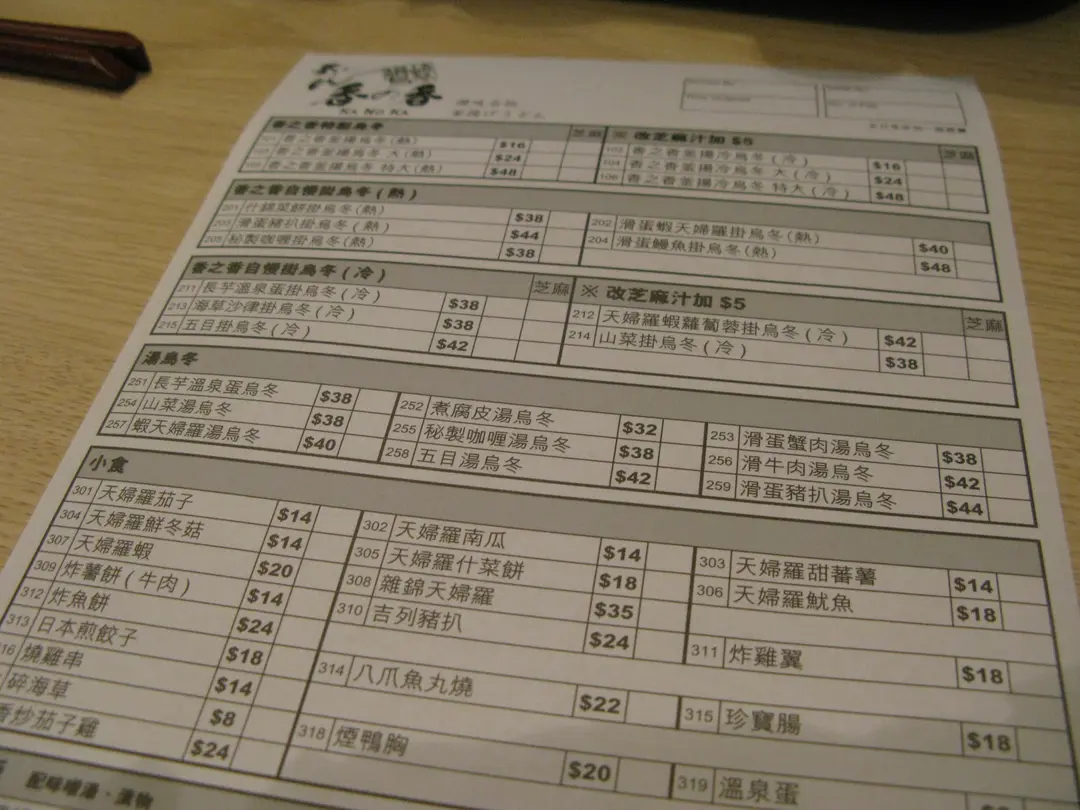 香の香
KA NO KA
讃岐名物
釜揚げうどん
香之香特製烏冬 芝麻 ※ 改芝麻汁加 $5 芝麻
香之香釜揚烏冬(熱) $16 102 香之香釜揚冷烏冬(冷) $16
香之香釜揚烏冬 大(熱) $24 104 香之香釜揚冷烏冬 大(冷) $24
香之香釜揚烏冬 特大(熱) $48 106 香之香釜揚冷烏冬 特大(冷) $48
香之香自慢掛烏冬(熱)
201 什錦菜餅掛烏冬(熱) $38 202 滑蛋蝦天婦羅掛烏冬(熱) $40
203 滑蛋豬扒掛烏冬(熱) $44 204 滑蛋鰻魚掛烏冬(熱) $48
205 秘製咖喱掛烏冬(熱) $38
香之香自慢掛烏冬(冷) 芝麻 ※ 改芝麻汁加 $5 芝麻
211 長芋溫泉蛋掛烏冬(冷) $38 212 天婦羅蝦蘿蔔蓉掛烏冬(冷) $42
213 海草沙律掛烏冬(冷) $38 214 山菜掛烏冬(冷) $38
215 五目掛烏冬(冷) $42
湯烏冬
251 長芋溫泉蛋烏冬 $38 252 煮腐皮湯烏冬 $32 253 滑蛋蟹肉湯烏冬 $38
254 山菜湯烏冬 $38 255 秘製咖喱湯烏冬 $38 256 滑牛肉湯烏冬 $42
257 蝦天婦羅湯烏冬 $40 258 五目湯烏冬 $42 259 滑蛋豬扒湯烏冬 $44
小食
301 天婦羅茄子 $14 302 天婦羅南瓜 $14 303 天婦羅甜蕃薯 $14
304 天婦羅鮮冬菇 $14 305 天婦羅什菜餅 $18 306 天婦羅魷魚 $18
307 天婦羅蝦 $20 308 雜錦天婦羅 $35
309 炸薯餅(牛肉) $14 310 吉列豬扒 $24 311 炸雞翼 $18
312 炸魚餅 $24
313 日本煎餃子 $18 314 八爪魚丸燒 $22 315 珍寶腸 $18
16 燒雞串 $14
碎海草 $8 318 煙鴨胸 $20 319 溫泉蛋
香炒茄子雞 $24